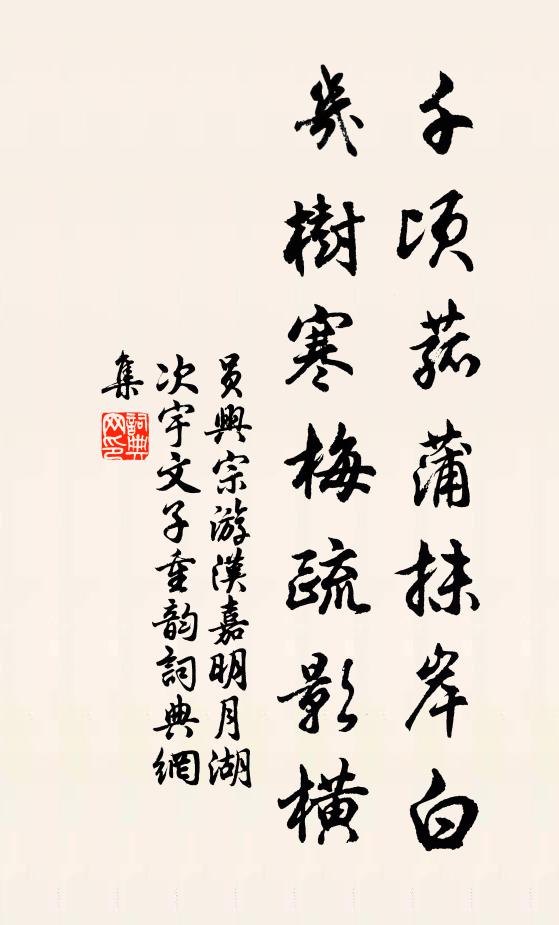 千頃菰蒲抹岸白
幾樹寒梅疏影橫
員興宗游漢嘉明月湖
次宇文子重韵詞典網
集
詞典
网印